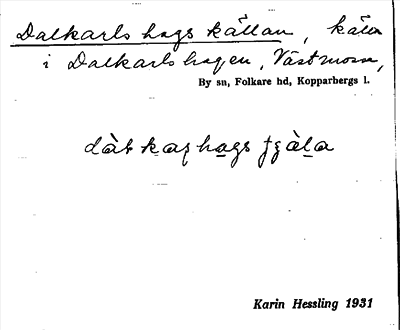 Dalkarls hags källan, källa
i Dalkarlshagen, Västmora,
By sn, Folkare hd, Kopparbergs l.
Karin Hessling 1931